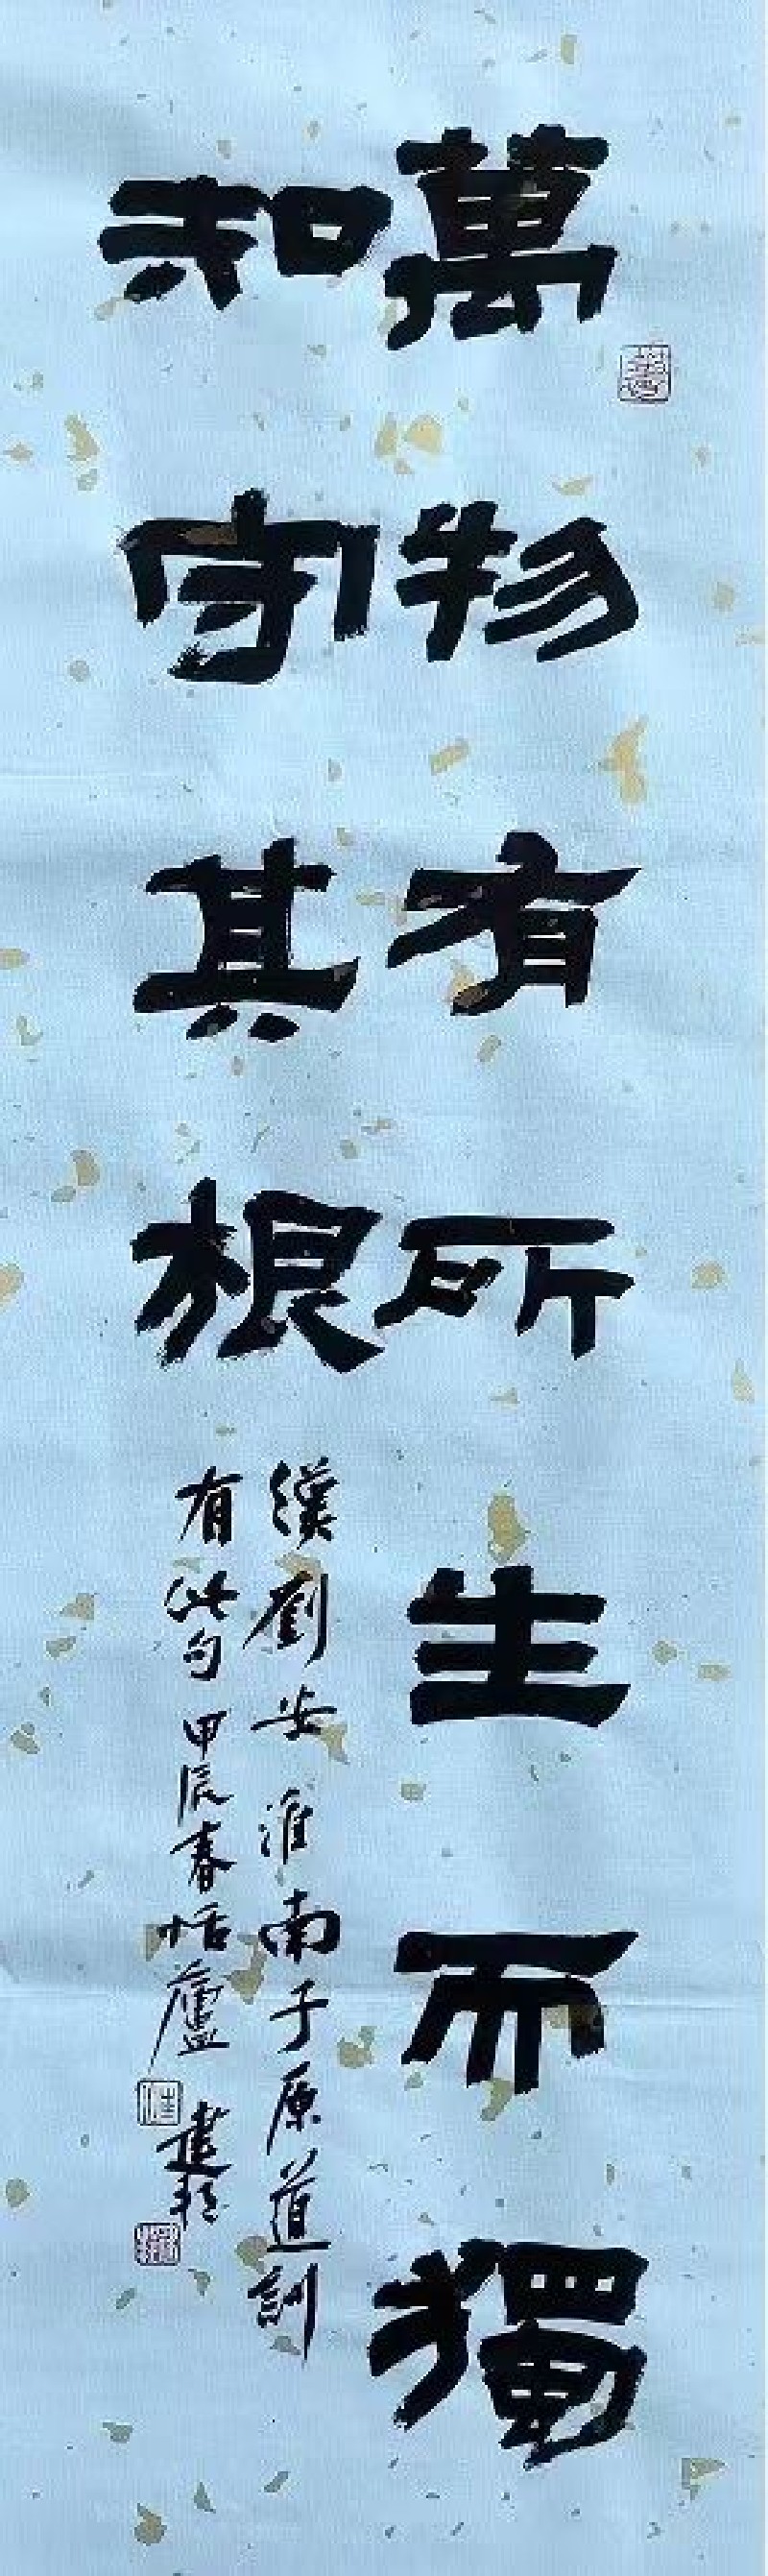 萬物有所生而獨
知守其根
漢劉安淮南子原道訓
有此句甲辰春恬廬建